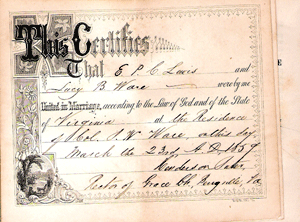 This Certifies
That E P C Lewis and
Lucy B Ware were by me
United in Marriage, according to the Law of God and of the State
of Virginia at the Residence
of Col. Ware, this day,
March the 23rd, A.D. 1859
Rector of Grace Ch, Va
E